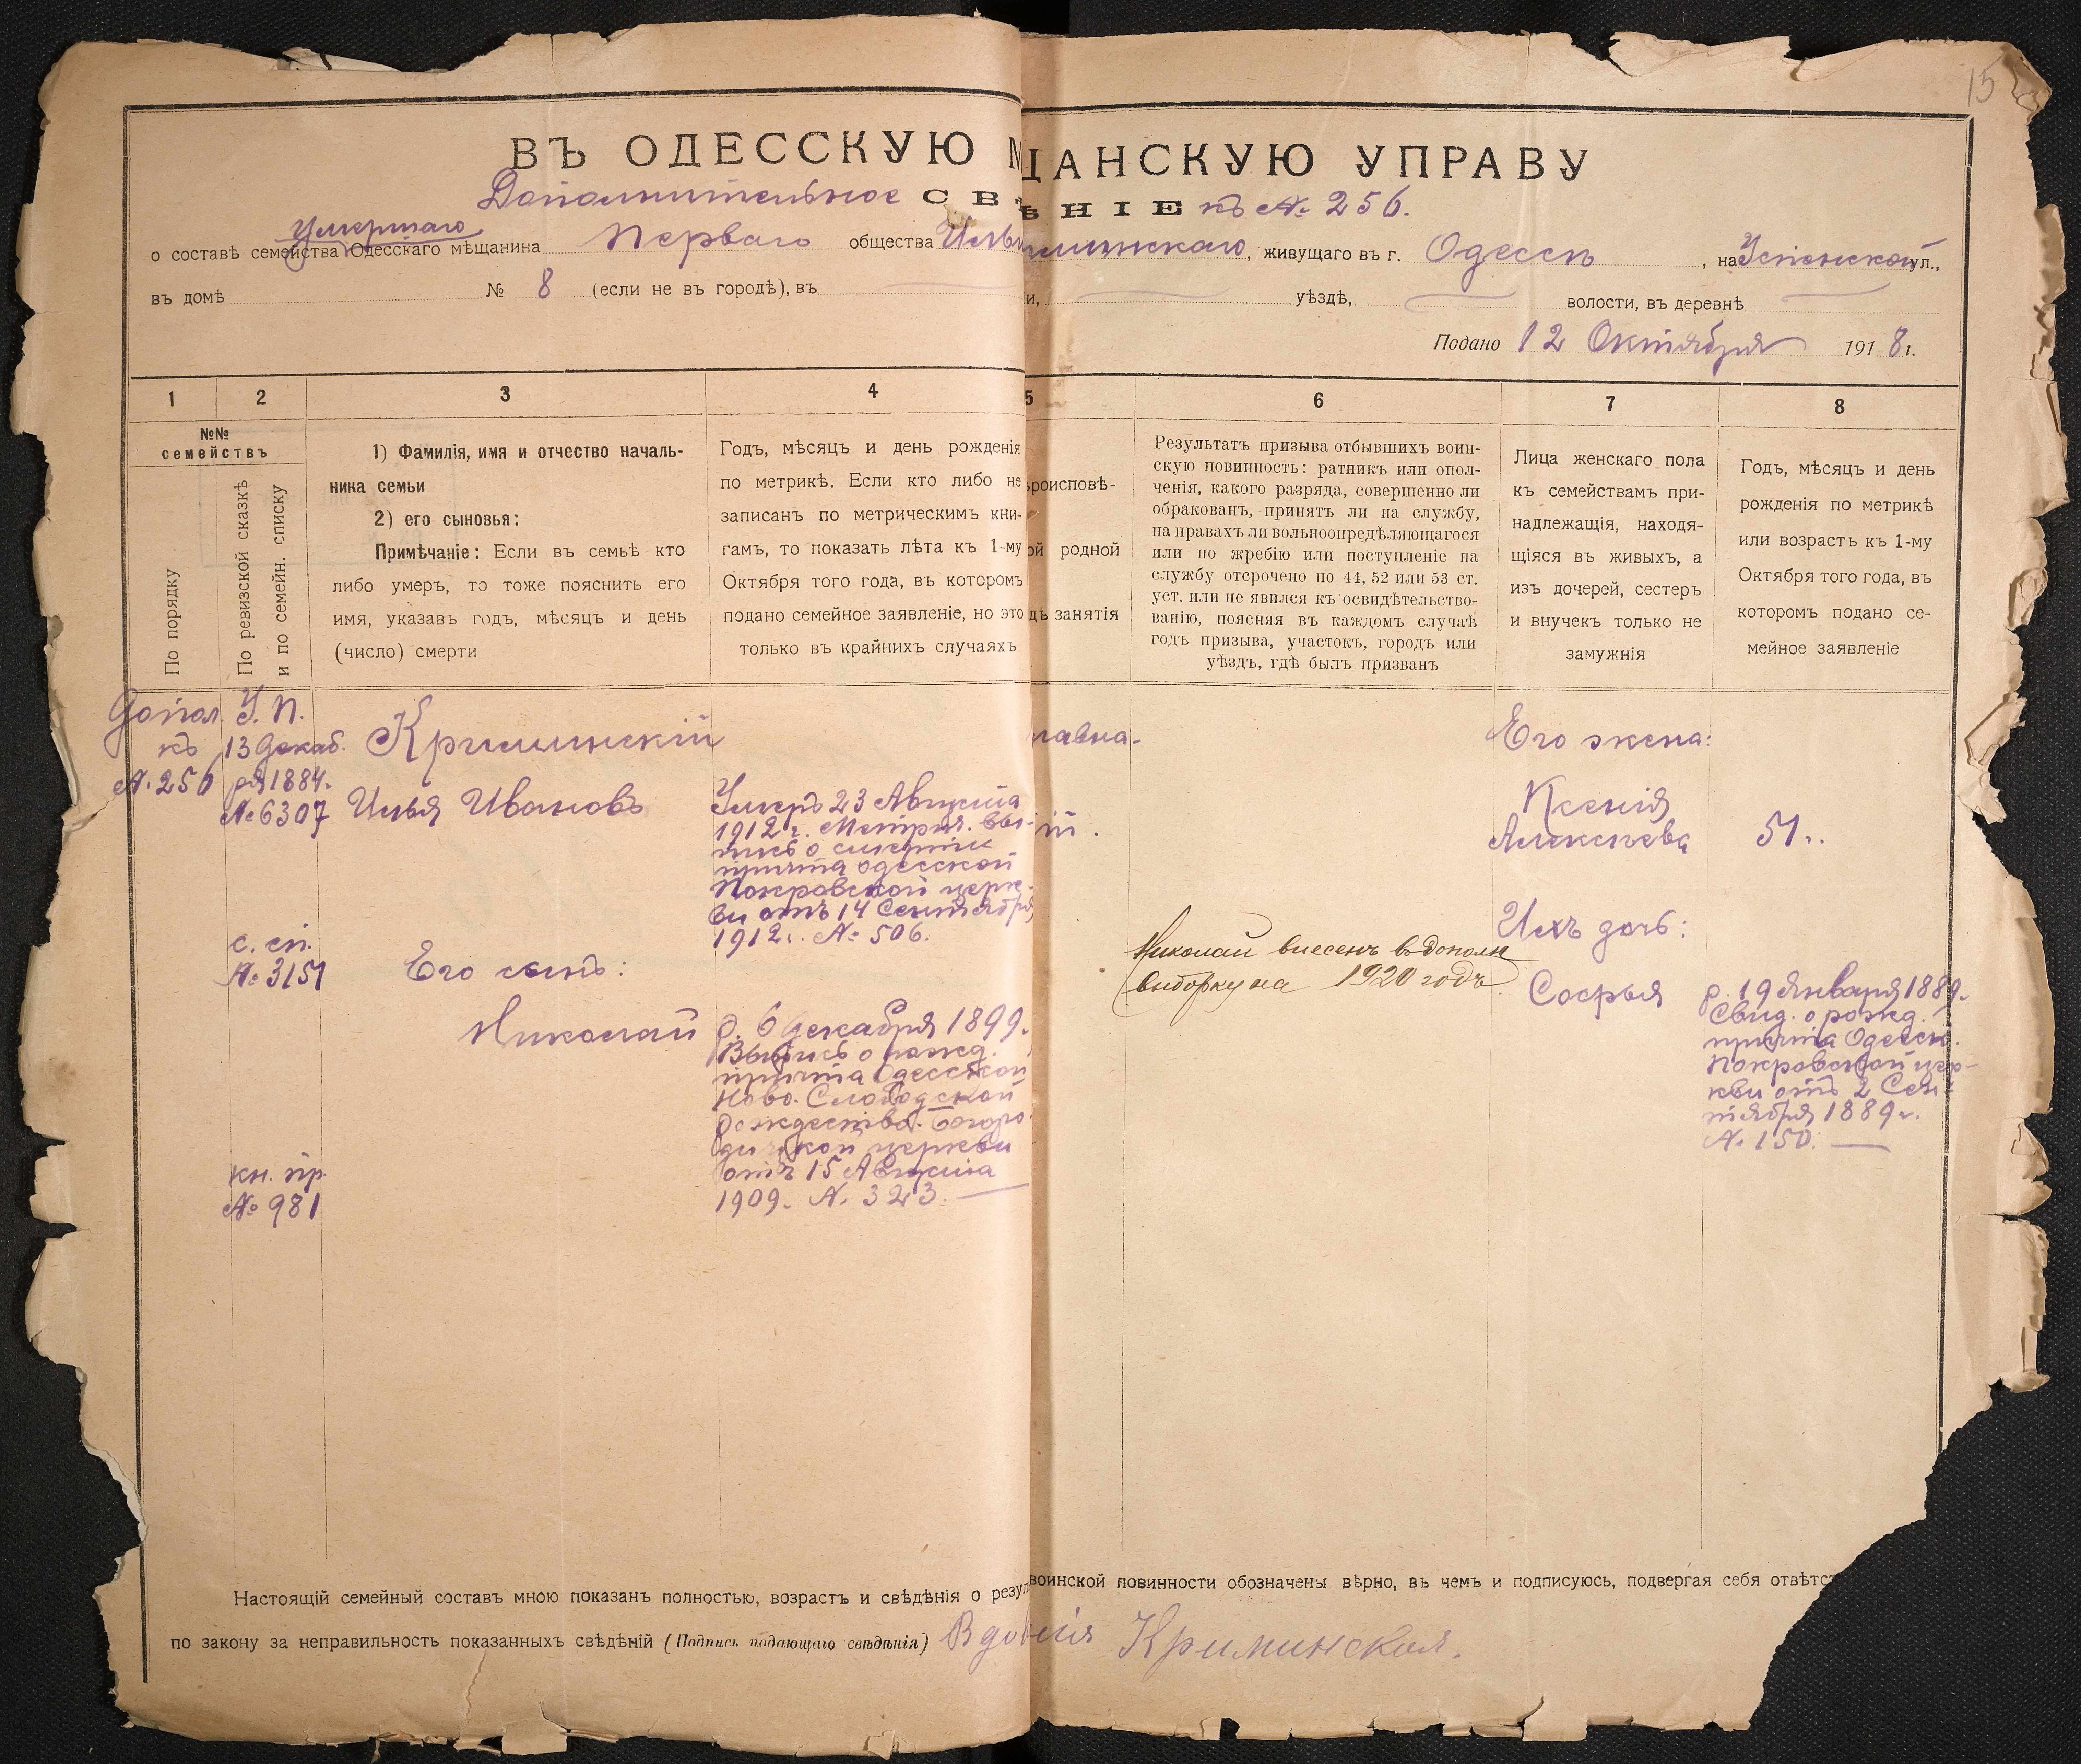 15
ВЪ ОДЕССКУЮ М ЩАНСКУЮ УПРАВУ
Дополнительное СВѢ НІЕ къ № 256.
умершаго
о составѣ семейства Одесскаго мѣщанина Перваго общества Иль миминскаго, живущаго въ г. Одессѣ, на Успенской ул.,
въ домѣ № 8 (если не въ городѣ), въ и, уѣздѣ, волости, въ деревнѣ
Подано 12 Октября 1918 г.
1 2 3 4 5 6 7 8
№№ семействъ
По порядку
По ревизской сказкѣ и по семейн. списку
1) Фамилія, имя и отчество началь-
ника семьи
2) его сыновья:
Примѣчаніе: Если въ семьѣ кто
либо умеръ, то тоже пояснить его
имя, указавъ годъ, мѣсяцъ и день
(число) смерти
Годъ, мѣсяцъ и день рожденія
по метрикѣ. Если кто либо не
записанъ по метрическимъ кни-
гамъ, то показать лѣта къ 1-му
Октября того года, въ которомъ
подано семейное заявленіе, но это
только въ крайнихъ случаяхъ
ѣроисповѣ-
ой родной
дъ занятія
Результатъ призыва отбывшихъ воин-
скую повинность: ратникъ или опол-
ченія, какого разряда, совершенно ли
обракованъ, принятъ ли на службу,
на правахъ ли вольноопредѣляющагося
или по жребію или поступленіе на
службу отсрочено по 44, 52 или 53 ст.
уст. или не явился къ освидѣтельство-
ванію, поясняя въ каждомъ случаѣ
годъ призыва, участокъ, городъ или
уѣздъ, гдѣ былъ призванъ
Лица женскаго пола
къ семействамъ при-
надлежащія, находя-
щіяся въ живыхъ, а
изъ дочерей, сестеръ
и внучекъ только не
замужнія
Годъ, мѣсяцъ и день
рожденія по метрикѣ
или возрастъ къ 1-му
Октября того года, въ
которомъ подано се-
мейное заявленіе
Допол.
къ
№ 256
У. П.
13 декаб.
ря 1884 г.
№ 6307
с. сп.
№ 3151
кн. пр.
№ 981
Криминскій
Илья Ивановъ
Его сынъ:
Николай
Умеръ 23 Августа
1912 г. Метрич. вы-
пись о смерти
причта одесской
Покровской церк-
ви отъ 14 Сентября
1912 г. № 506.
р. 6 декабря 1899 г.
Выпись о рожд.
причта Одесской
Ново-Слободской
Рождество-Богоро-
дичной церкви
отъ 15 Августа
1909 г. № 323.
лавна-
ій.
Николай внесенъ в дополн
выборку на 1920 годъ
Его жена:
Ксенія
Алексѣева
Ихъ дочь:
Софья
51 г.
р. 19 Января 1889 г.
Свид. о рожд.
причта Одесск.
Покровской цер-
кви отъ 2 Сен-
тября 1889 г.
№ 150.
Настоящій семейный составъ мною показанъ полностью, возрастъ и свѣдѣнія о резул воинской повинности обозначены вѣрно, въ чемъ и подписуюсь, подвергая себя отвѣтс
по закону за неправильность показанныхъ свѣдѣній (Подпись подающаго свѣдѣнія) Вдо Криминская.